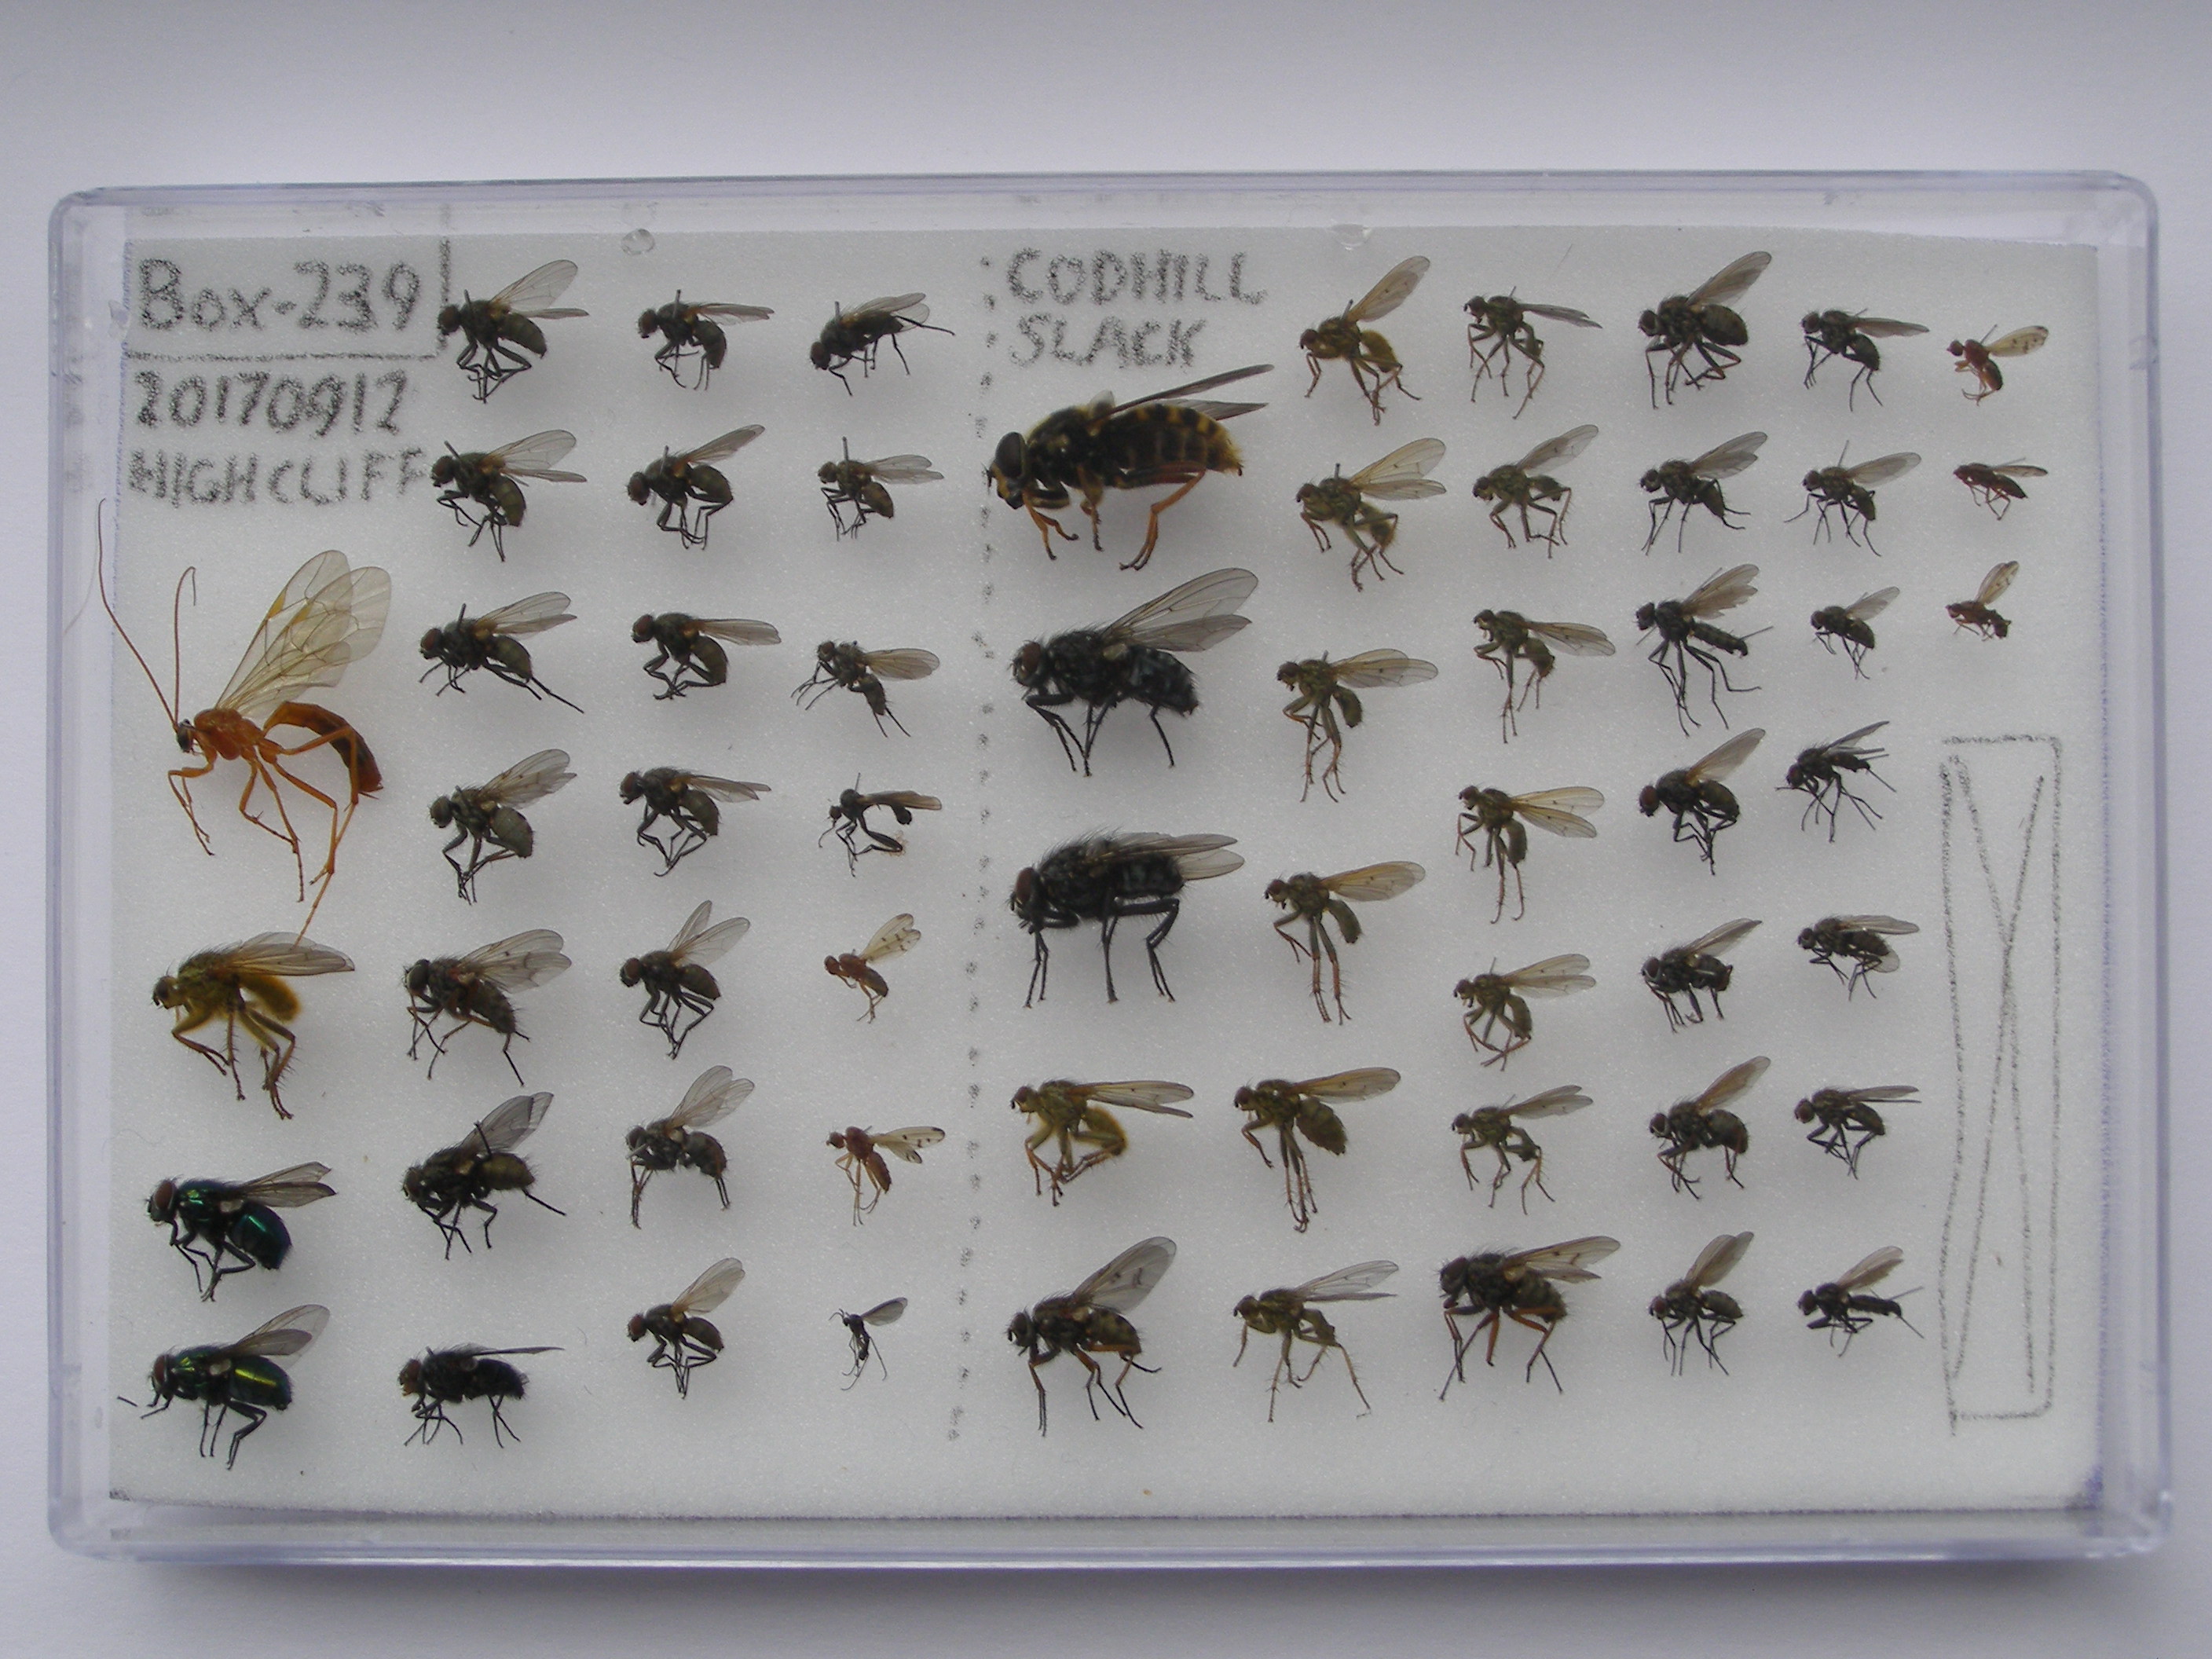 Box-239
20170912
HIGHCLIFF
CODHILL
SLACK